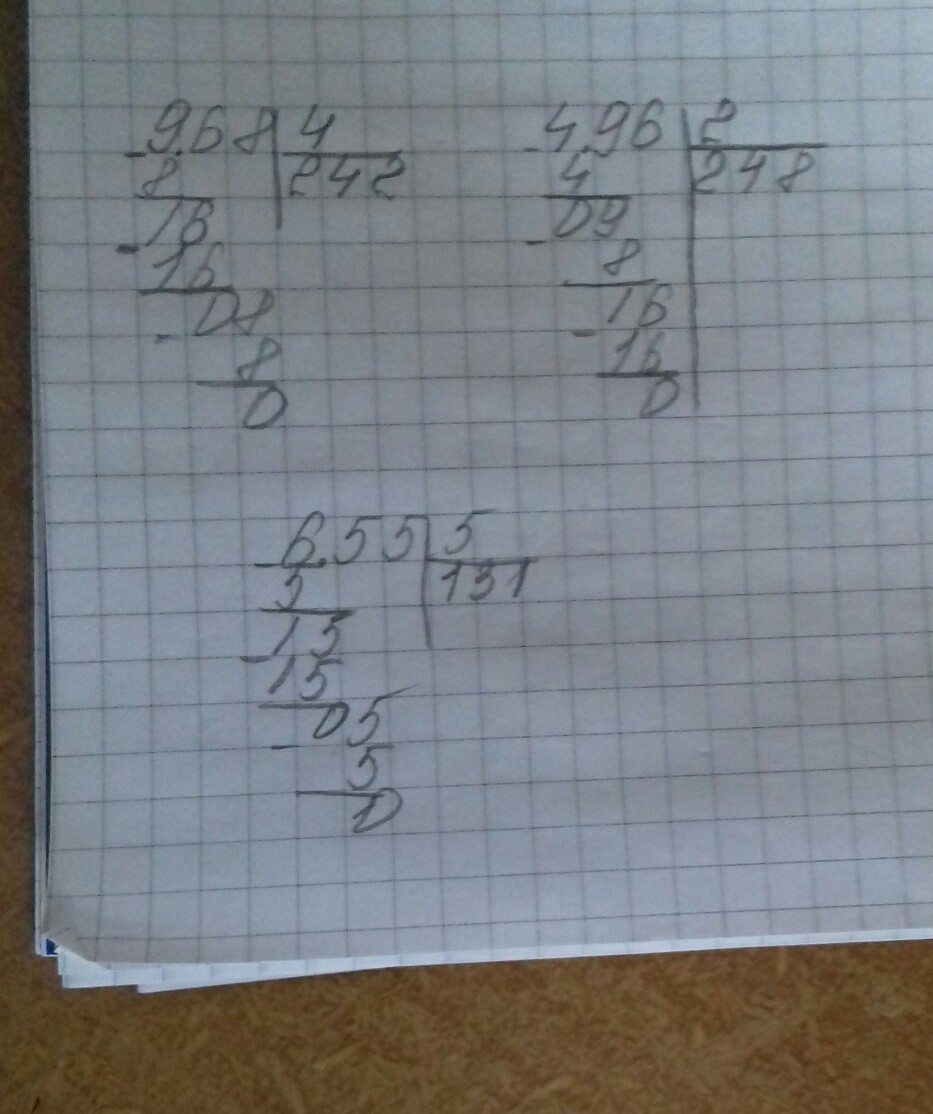 9.68 4
8 242
16
16
08
8
0
4.96 2
4 248
09
8
16
16
0
6.55 5
5 131
15
15
05
5
0